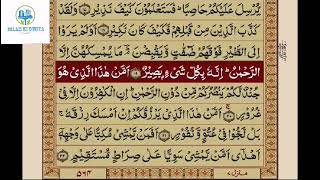 BILAD KI DUNIYA
يُّرْسِلَ عَلَيْكُمْ حَاصِبًا ؕ فَسَتَعْلَمُوْنَ كَيْفَ نَذِيْرِ ۝۱۷ وَلَقَدْ
كَذَّبَ الَّذِيْنَ مِنْ قَبْلِهِمْ فَكَيْفَ كَانَ نَكِيْرِ ۝۱۸ اَوَلَمْ يَرَوْا
اِلَى الطَّيْرِ فَوْقَهُمْ صٰٓفّٰتٍ وَّيَقْبِضْنَ ؔۘ مَا يُمْسِكُهُنَّ اِلَّا
الرَّحْمٰنُ ؕ اِنَّهٗ بِكُلِّ شَيْءٍۭ بَصِيْرٌ ۝۱۹ اَمَّنْ هٰذَا الَّذِيْ هُوَ
جُنْدٌ لَّكُمْ يَنْصُرُكُمْ مِّنْ دُوْنِ الرَّحْمٰنِ ؕ اِنِ الْكٰفِرُوْنَ اِلَّا فِيْ
غُرُوْرٍ ۝۲۰ اَمَّنْ هٰذَا الَّذِيْ يَرْزُقُكُمْ اِنْ اَمْسَكَ رِزْقَهٗ ۚ
بَلْ لَّجُّوْا فِيْ عُتُوٍّ وَّنُفُوْرٍ ۝۲۱ اَفَمَنْ يَّمْشِيْ مُكِبًّا عَلٰى وَجْهِهٖٓ
اَهْدٰٓى اَمَّنْ يَّمْشِيْ سَوِيًّا عَلٰى صِرَاطٍ مُّسْتَقِيْمٍ ۝۲۲
منزل ۷
۵۶۴